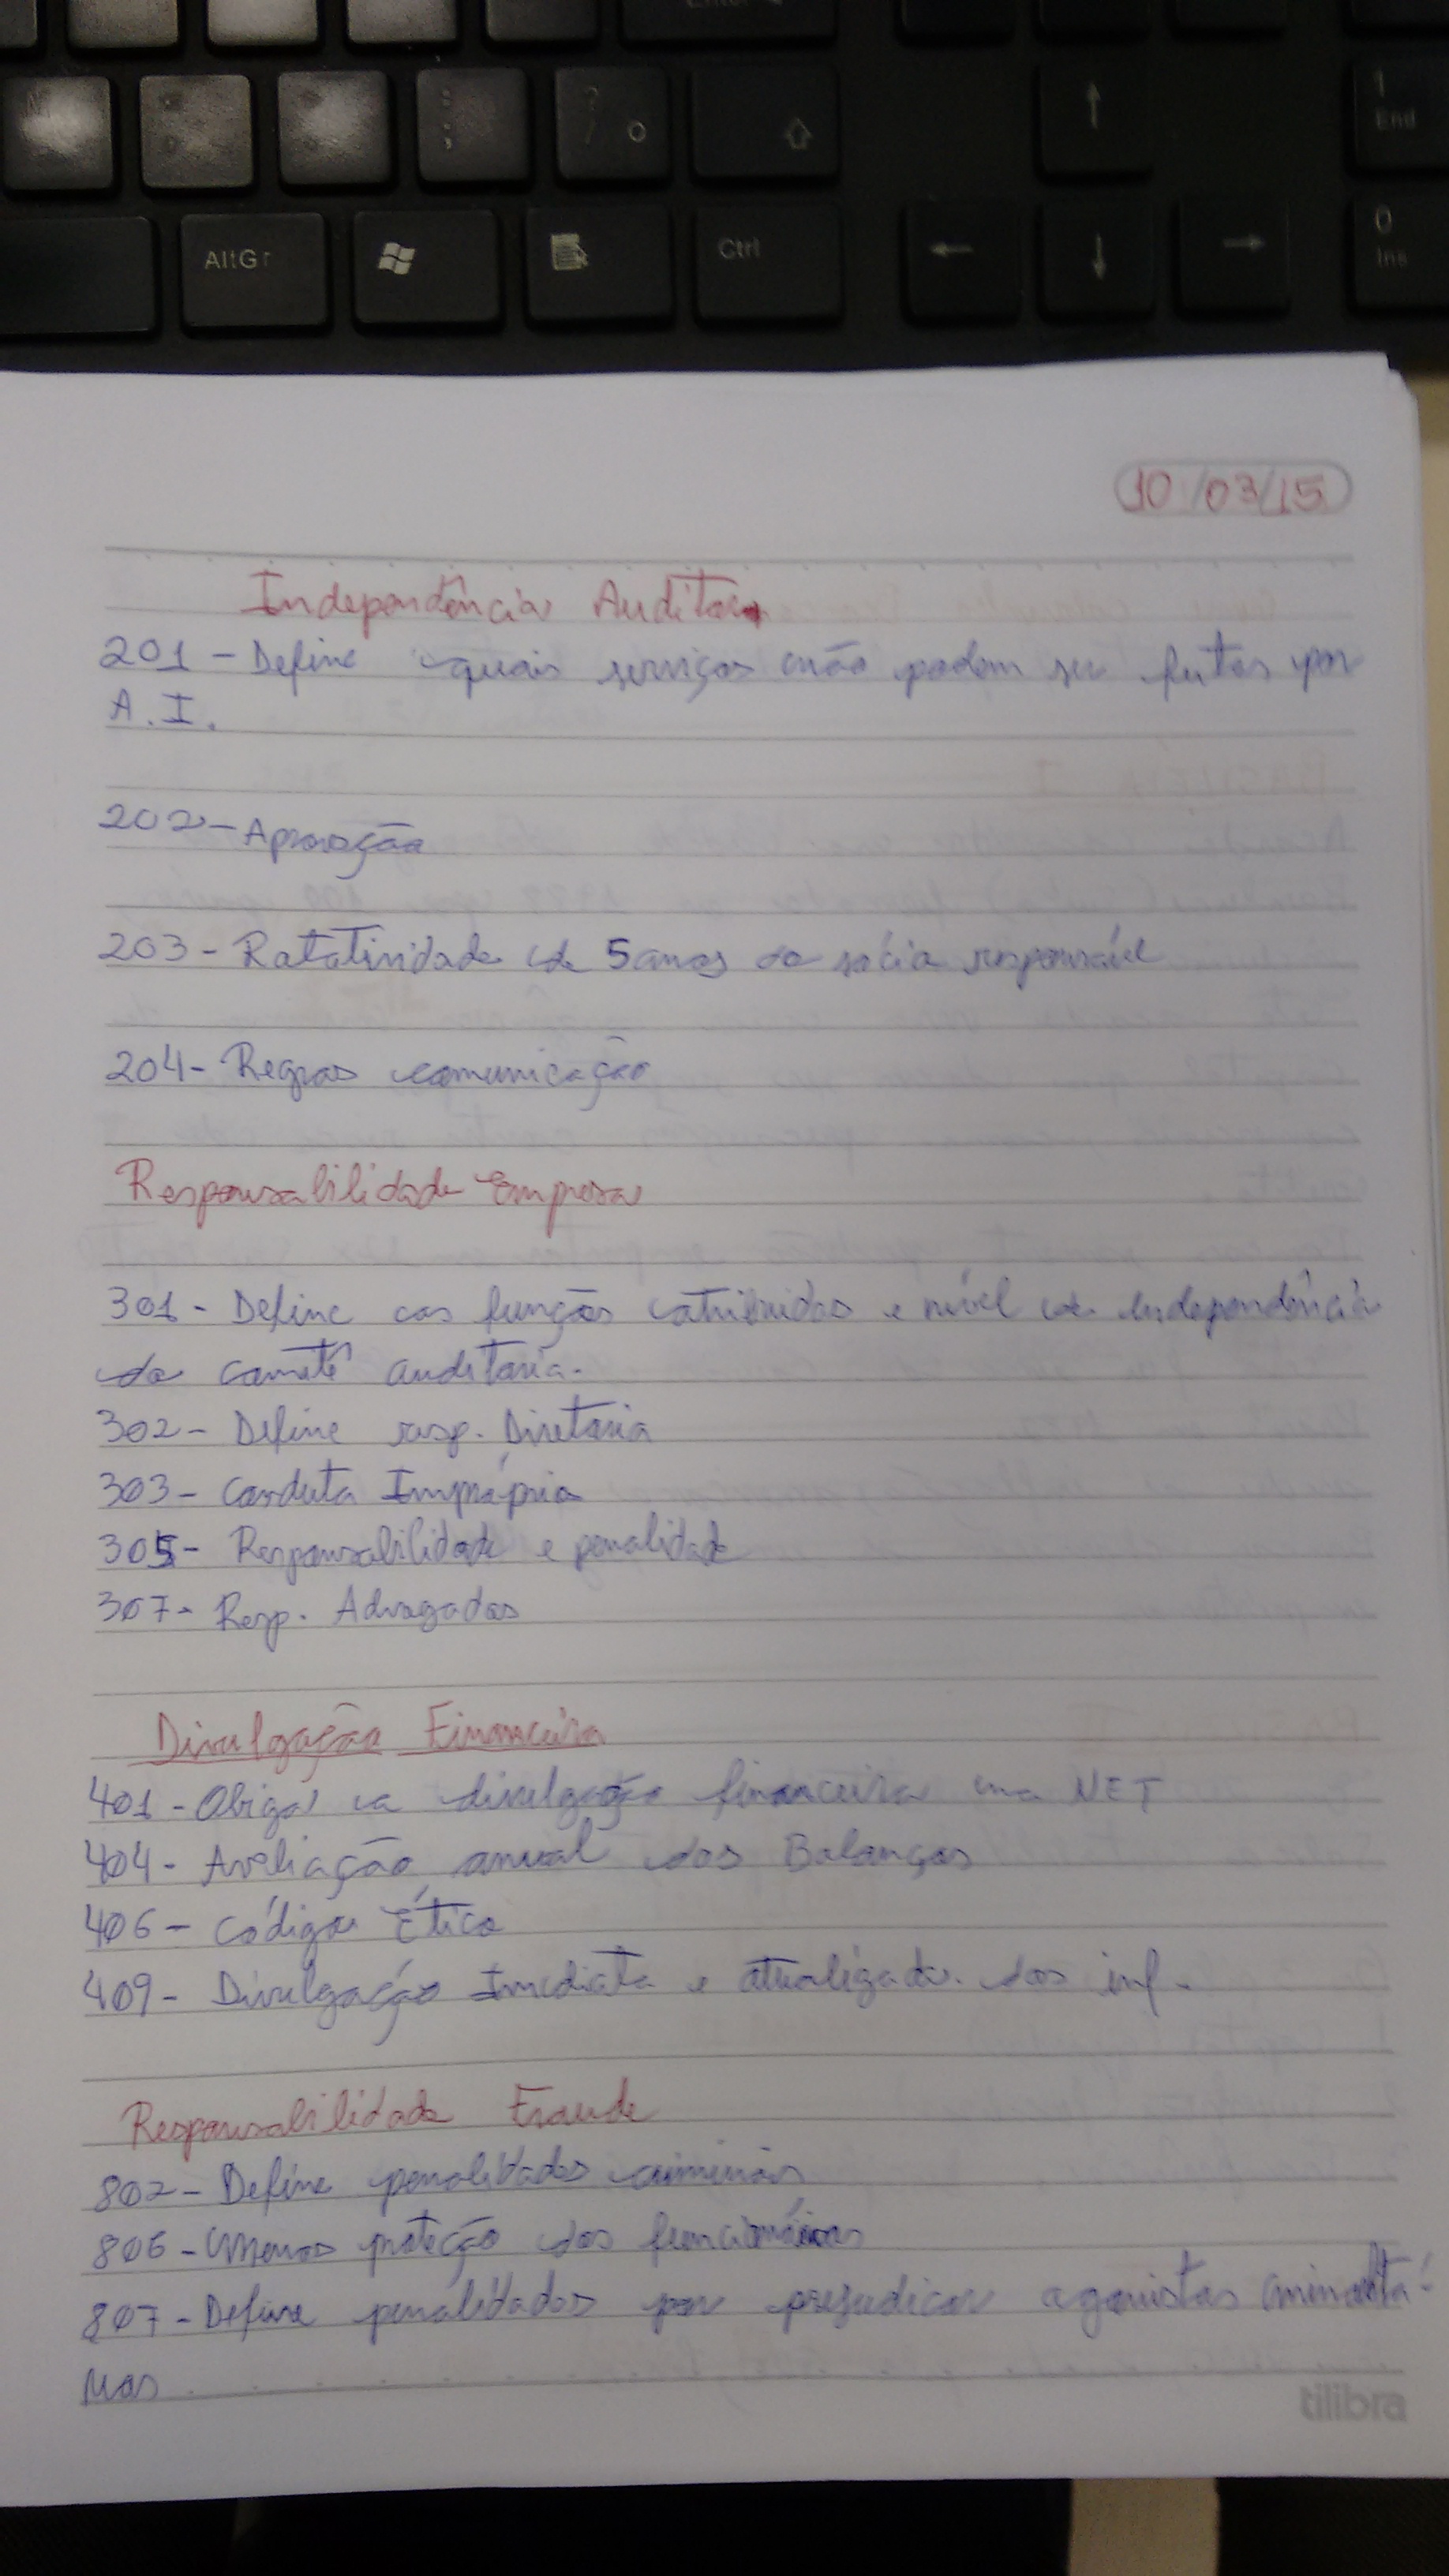 Enter
End
AltGr
Ctrl
0
Ins
10/03/15
Independência Auditor
201 - Define quais serviços não podem ser feitos por
A.I.
202 - Aprovação
203 - Rotatividade de 5 anos do sócio responsável
204 - Regras comunicação
Responsabilidade Empresa
301 - Define as funções atribuidas e nível de independência
do comitê auditoria.
302 - Define resp. Diretoria
303 - Conduta Imprópria
305 - Responsabilidade e penalidade
307 - Resp. Advogados
Divulgação Financeira
401 - Obiga a divulgação financeira na NET
404 - Avaliação anual dos Balanços
406 - Código Ético
409 - Divulgação Imediata e atualizada. das inf.
Responsabilidade Fraude
802 - Define penalidades criminais
806 - proteção dos funcionários
807 - Define penalidades por prejudicar
tilibra